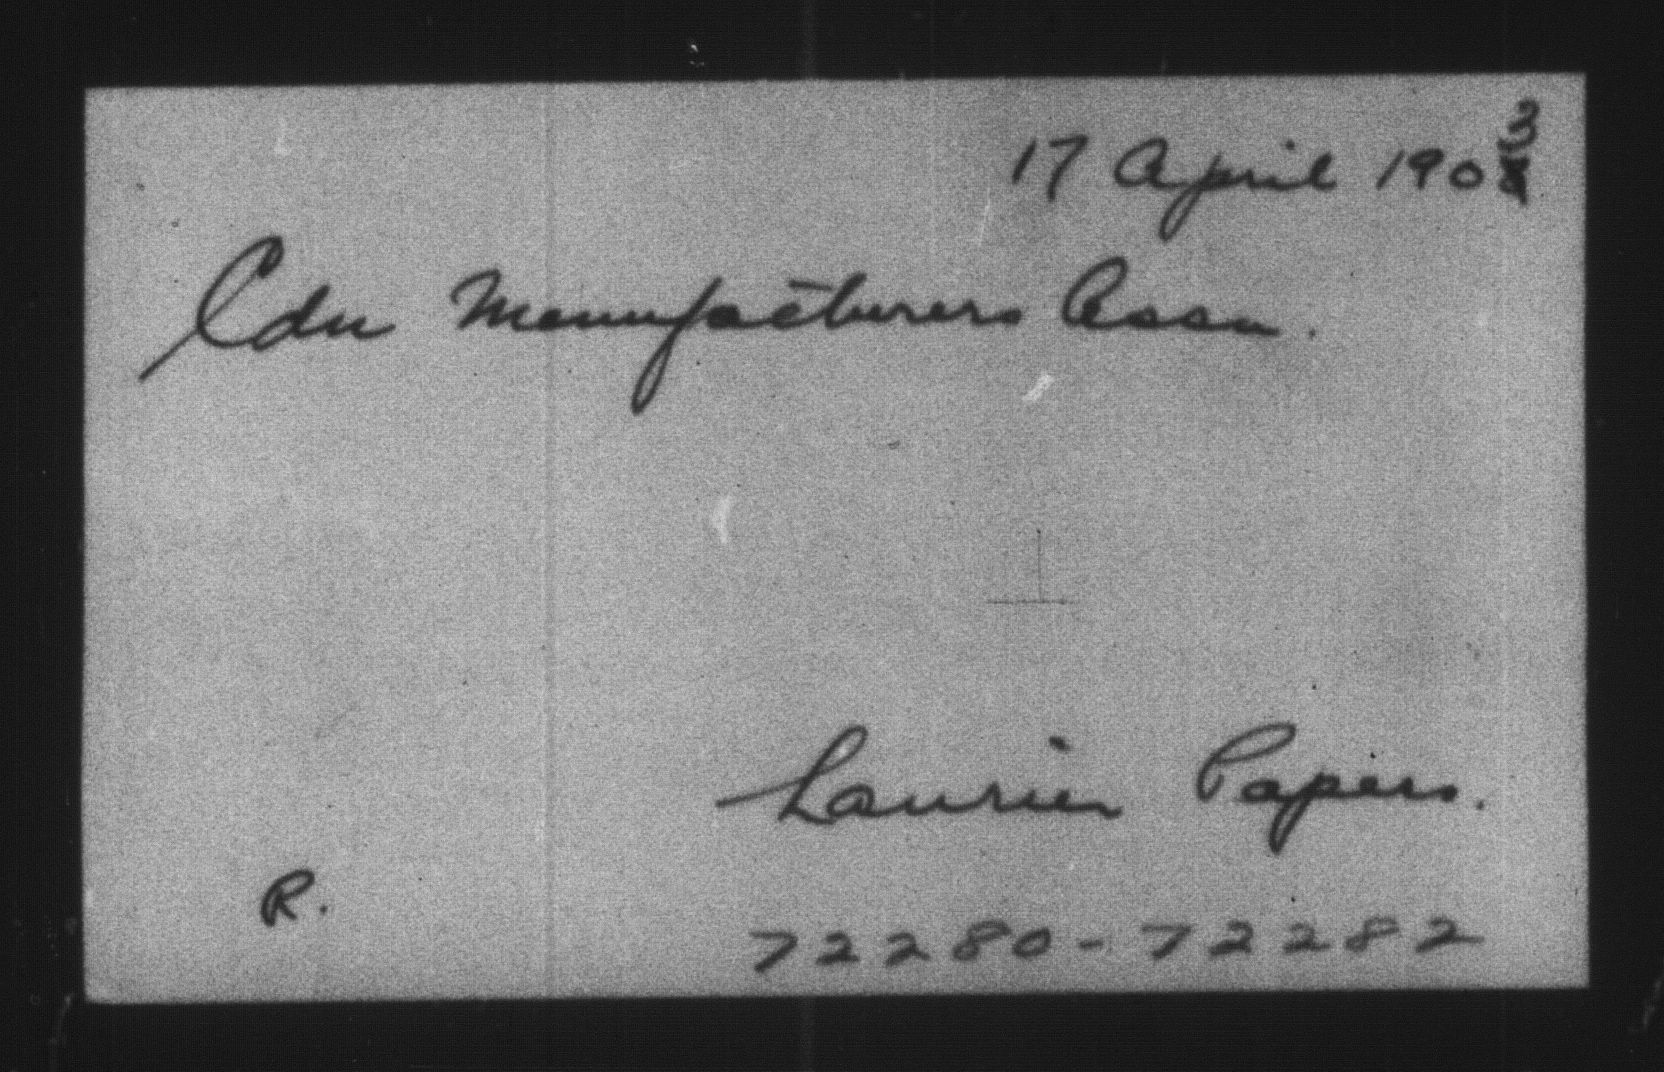 17 April 1903
Cdn Manufacturers Assn.
Laurier Papers.
R.
72280-72282